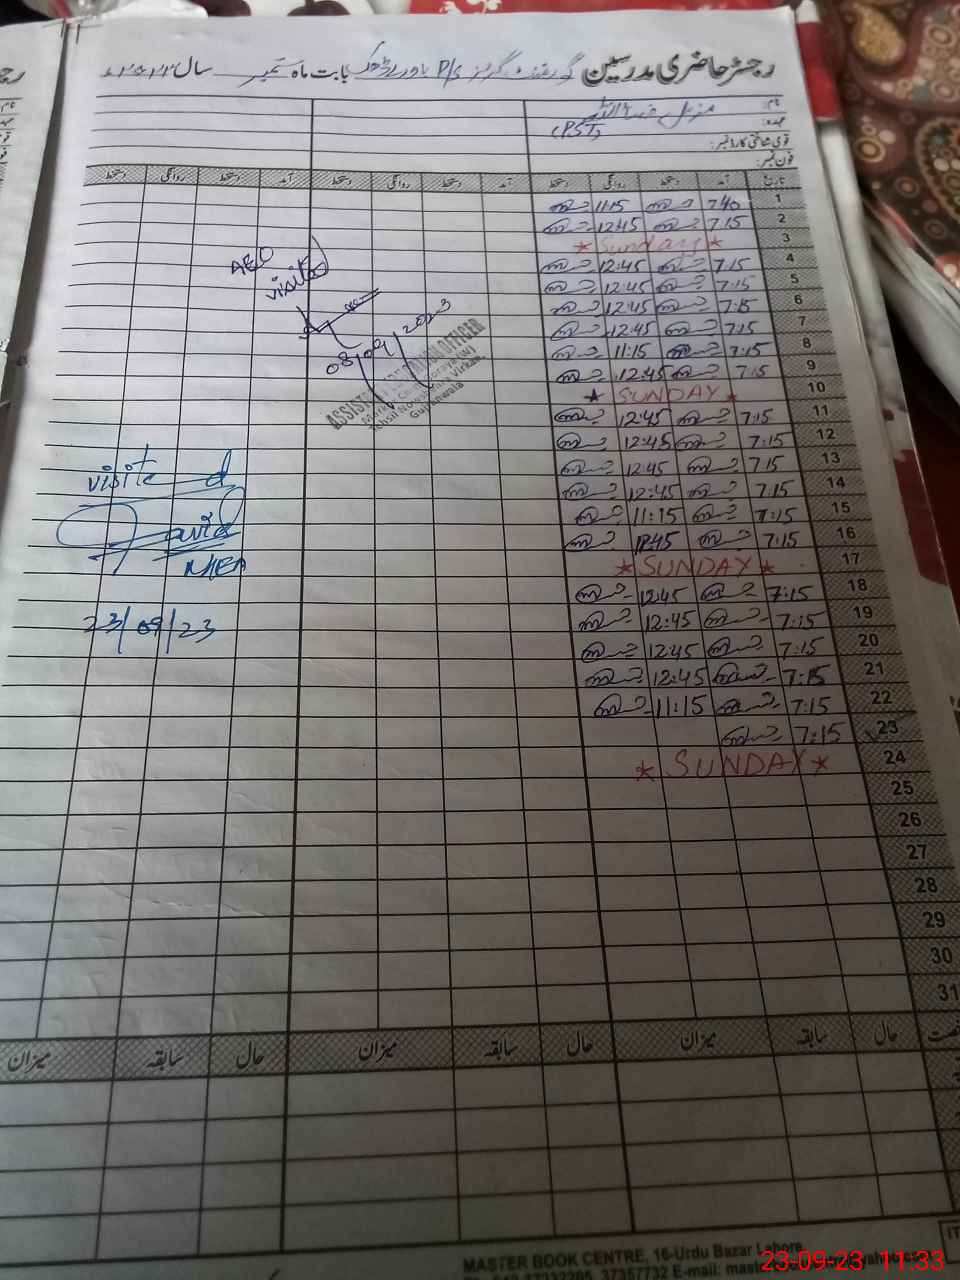 رجسٹر حاضری مدرسین گورنمنٹ گرلز P/S بابت ماہ ستمبر سال ۲۰۲۳ء
نام:
عہدہ: (PST)
قومی شناختی کارڈ نمبر:
فون نمبر:
تاریخ آمد دستخط روانگی دستخط آمد دستخط روانگی دستخط آمد دستخط روانگی دستخط
1 7:40 11:15
2 7:15 12:45
3 ★ Sunday ★
4 7:15 12:45
5 7:15 12:45
6 7:15 12:45
7 7:15 12:45
8 7:15 11:15
9 7:15 12:45
10 ★ SUNDAY ★
11 7:15 12:45
12 7:15 12:45
13 7:15 12:45
14 7:15 12:45
15 7:15 11:15
16 7:15 12:45
17 ★ SUNDAY ★
18 7:15 12:45
19 7:15 12:45
20 7:15 12:45
21 7:15 12:45
22 7:15 11:15
23 7:15
24 ★ SUNDAY ★
25
26
27
28
29
30
31
AEO
visited
08/09/2023
ASSISTANT EDUCATION OFFICER
Markaz
Tehsil Noshehra Virkan
Gujranwala
visited
Javid
MEA
23/09/23
حال سابقہ میزان حال سابقہ میزان حال سابقہ میزان
MASTER BOOK CENTRE, 16-Urdu Bazar Lahore
37357732 E-mail:
23-09-23 11:33